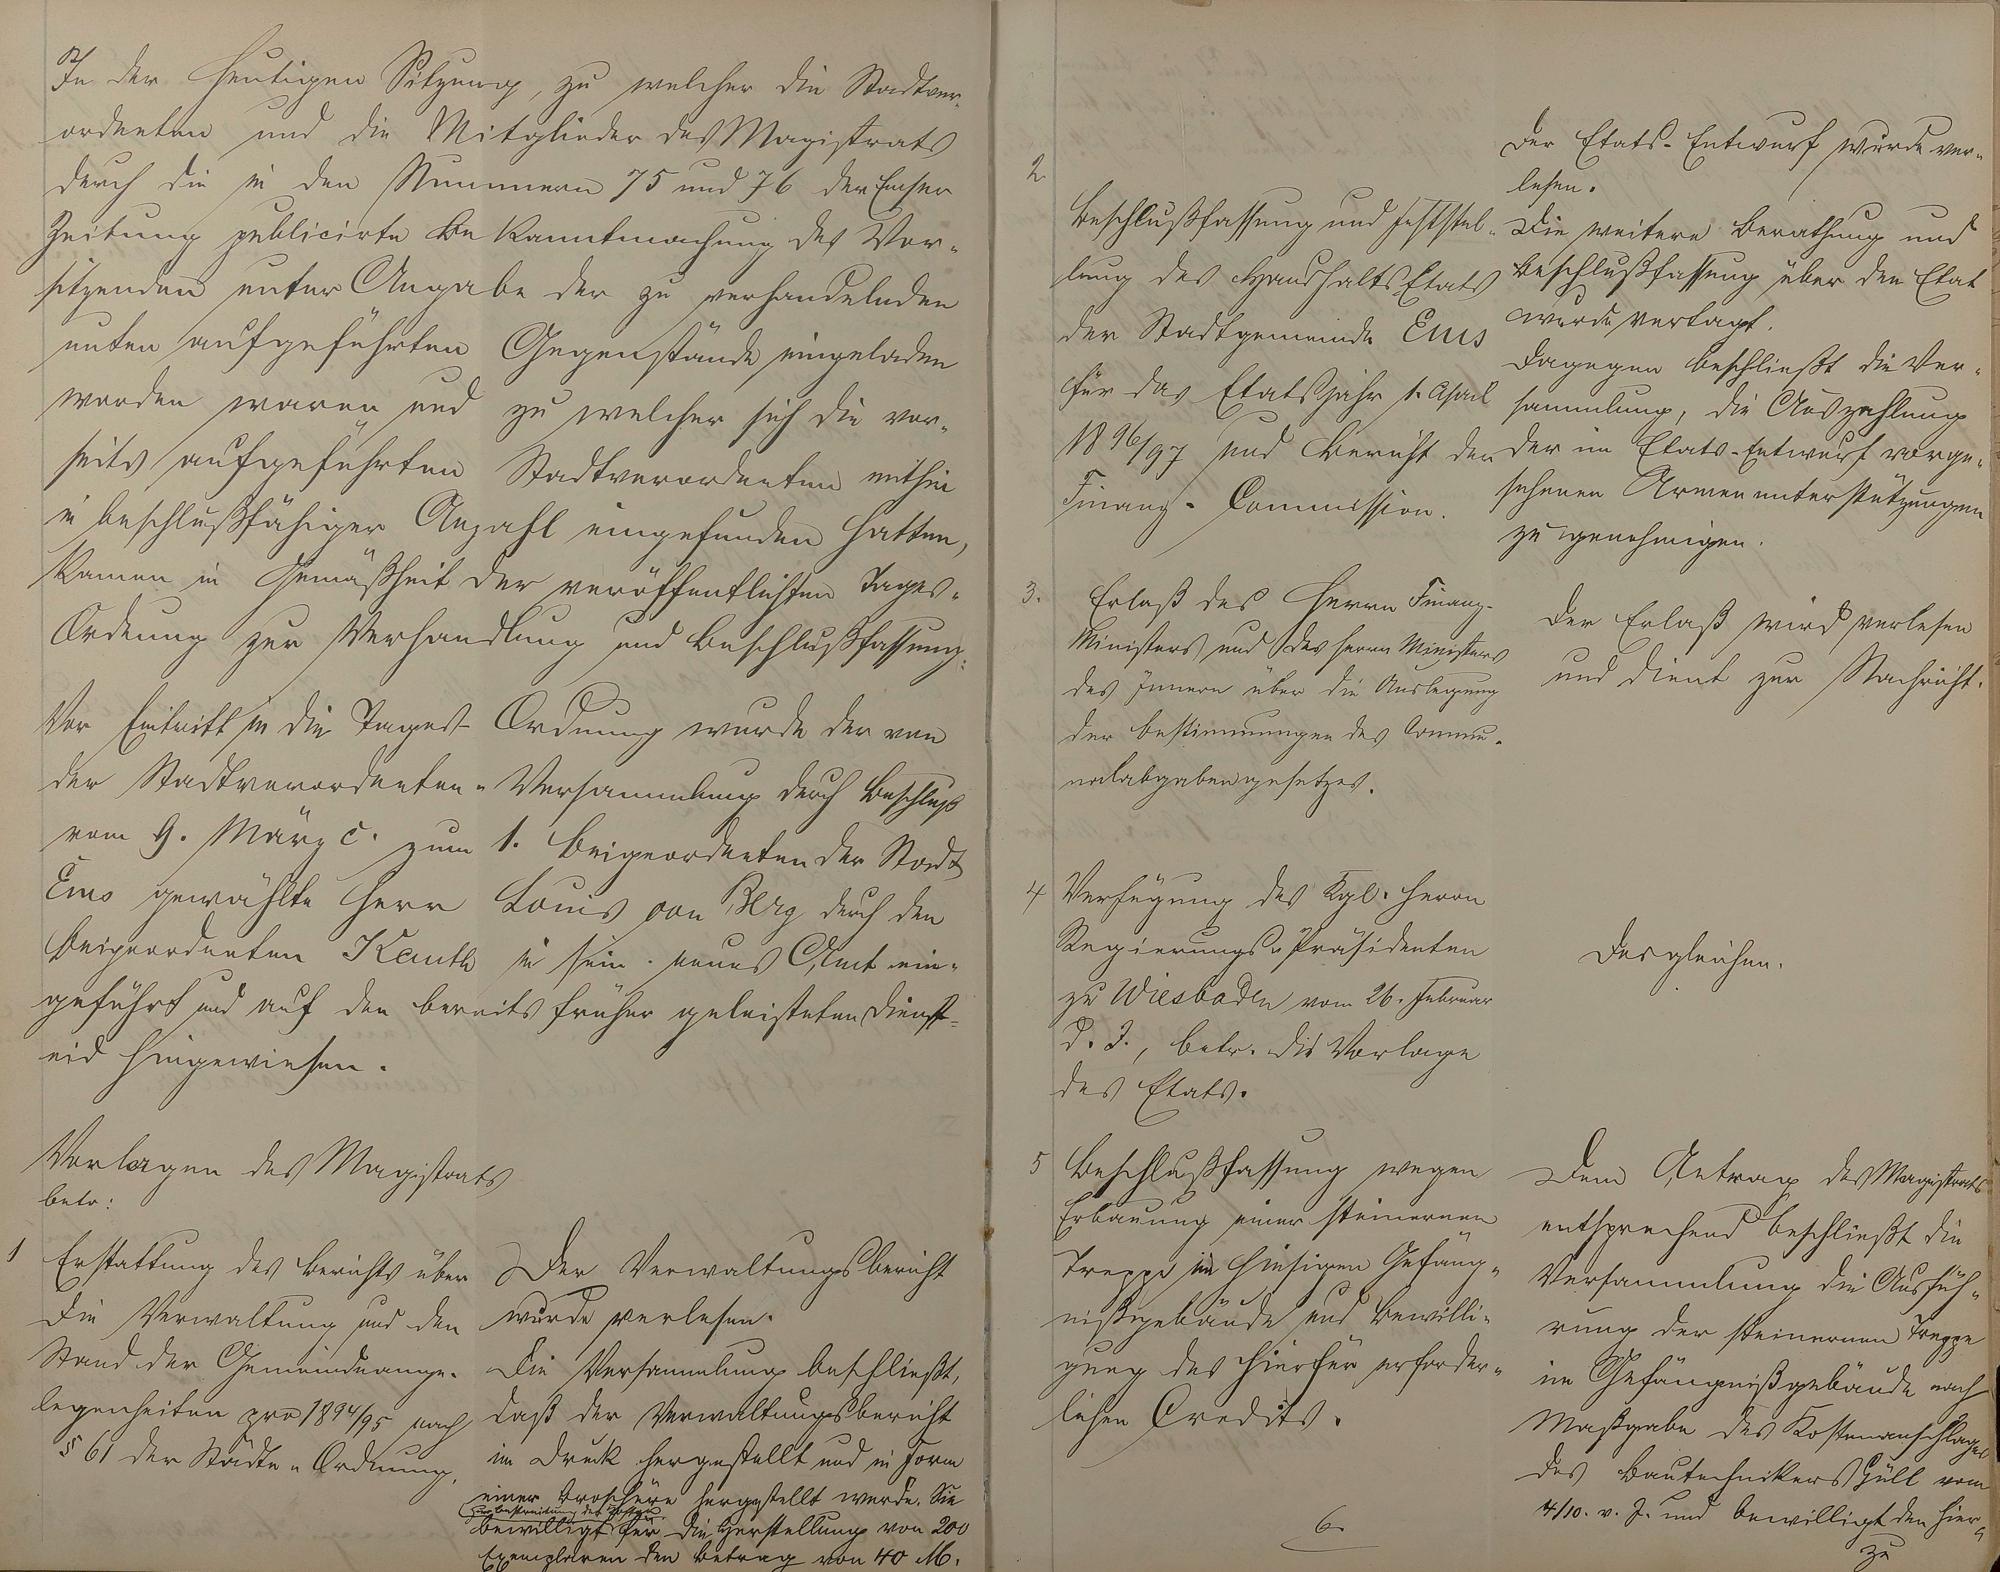 In der heutigen Sitzung, zu welcher die Stadtver-
ordneten und die Mitglieder des Magistrats
durch die in den Nummern 75 und 76 der Emser
Zeitung publicirte Bekanntmachung des Vor-
sitzenden unter Angabe der zu verhandelnden
unten aufgeführten Gegenstände eingeladen
worden waren und zu welcher sich die vor-
seits aufgeführten Stadtverordneten mithin
in beschlußfähiger Anzahl eingefunden hatten,
kamen in Gemäßheit der veröffentlichten Tages-
Ordnung zur Verhandlung und Beschlußfassung:
Vor Eintritt in die Tages-Ordnung wurde der von
der Stadtverordneten-Versammlung durch Beschluß
vom 9. März c. zum 1. Beigeordneten der Stadt
Ems gewählte Herr Louis von Berg durch den
Beigeordneten Kauth in sein neues Amt ein-
geführt und auf den bereits früher geleisteten Dienst-
eid hingewiesen.
Vorlagen des Magistrats
betr:
1 Erstattung des Berichts über
die Verwaltung und den
Stand der Gemeindeange-
legenheiten pro 1894/95 nach
§ 61 der Städte-Ordnung.
Der Verwaltungsbericht
wurde verlesen.
Die Versammlung beschließt,
daß der Verwaltungsbericht
im Druck hergestellt und in Form
einer Broschüre hergestellt werde. Sie
zur Bestreitung der Kosten
bewilligt für die Herstellung von 200
Exemplaren den Betrag von 40 M.
2
Beschlußfassung und Feststel-
lung des Haushalts-Etats
der Stadtgemeinde Ems
für das Etatsjahr 1. April
1896/97 und Bericht der
Finanz-Commission.
Der Etats-Entwurf wurde ver-
lesen.
Die weitere Berathung und
Beschlußfassung über den Etat
wurde vertagt.
Dagegen beschließt die Ver-
sammlung, die Auszahlung
der im Etats-Entwurf vorge-
sehenen Armenunterstützungen
zu genehmigen.
3. Erlaß des Herrn Finanz-
Ministers und des Herrn Ministers
des Innern über die Auslegung
der Bestimmungen des Commu-
nalabgabengesetzes.
Der Erlaß wird verlesen
und dient zur Nachricht.
4 Verfügung des Kgl. Herrn
Regierungs-Präsidenten
zu Wiesbaden vom 26. Februar
d. J., betr. die Vorlage
des Etats.
Desgleichen.
5 Beschlußfassung wegen
Erbauung einer steinernen
Treppe im hiesigen Gefäng-
nißgebäude und Bewilli-
gung des hierfür erforder-
lichen Credits.
Dem Antrag des Magistrats
entsprechend beschließt die
Versammlung die Ausfüh-
rung der steinernen Treppe
im Gefängnißgebäude nach
Maßgabe des Kostenanschlages
des Bautechnikers vom
4/10. v. J. und bewilligt den hier-
zu
6.